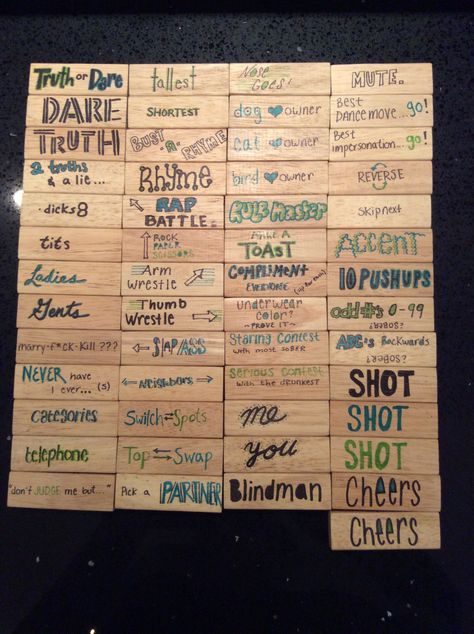 Truth or Dare
DARE
TRUTH
2 truths
& a lie...
·dicks 8
tits
Ladies
Gents
marry-f*ck-kill???
NEVER have
I ever... (5)
categories
telephone
"don't JUDGE me but..."
tallest
SHORTEST
BUST
-A-
RHYME
Rhyme
RAP
BATTLE
ROCK
PAPER
SCISSORS
Arm
Wrestle
Thumb
Wrestle
SLAP ASS
Neighbors
Switch Spots
Top Swap
Pick a PARTNER
Nose
Goes!
dog owner
cat owner
bird owner
RULE Master
Make A
TOAST
COMPLIMENT
EVERYONE
underwear
color?
~PROVE IT~
Staring Contest
with most SOBER
Serious contest
with the drunkest
me
you
Blindman
MUTE.
Best
DANCE move...go!
Best
impersonation...go!
REVERSE
Skip next
ACCENT
10 PUSHUPS
odd #'s 0-99
?SOBER?
ABC's Backwards
?SOBER?
SHOT
SHOT
SHOT
Cheers
Cheers